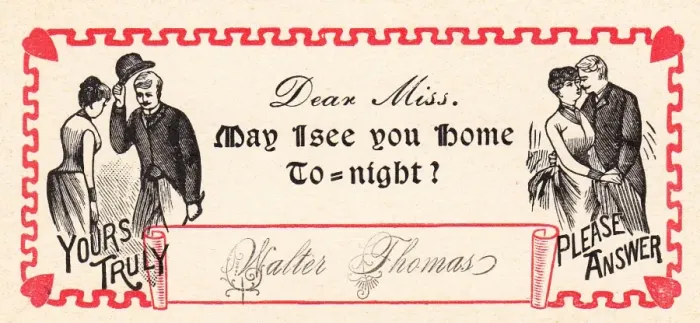 Dear Miss.
May I see you home
To=night?
YOURS
TRULY
Walter Thomas
PLEASE
ANSWER